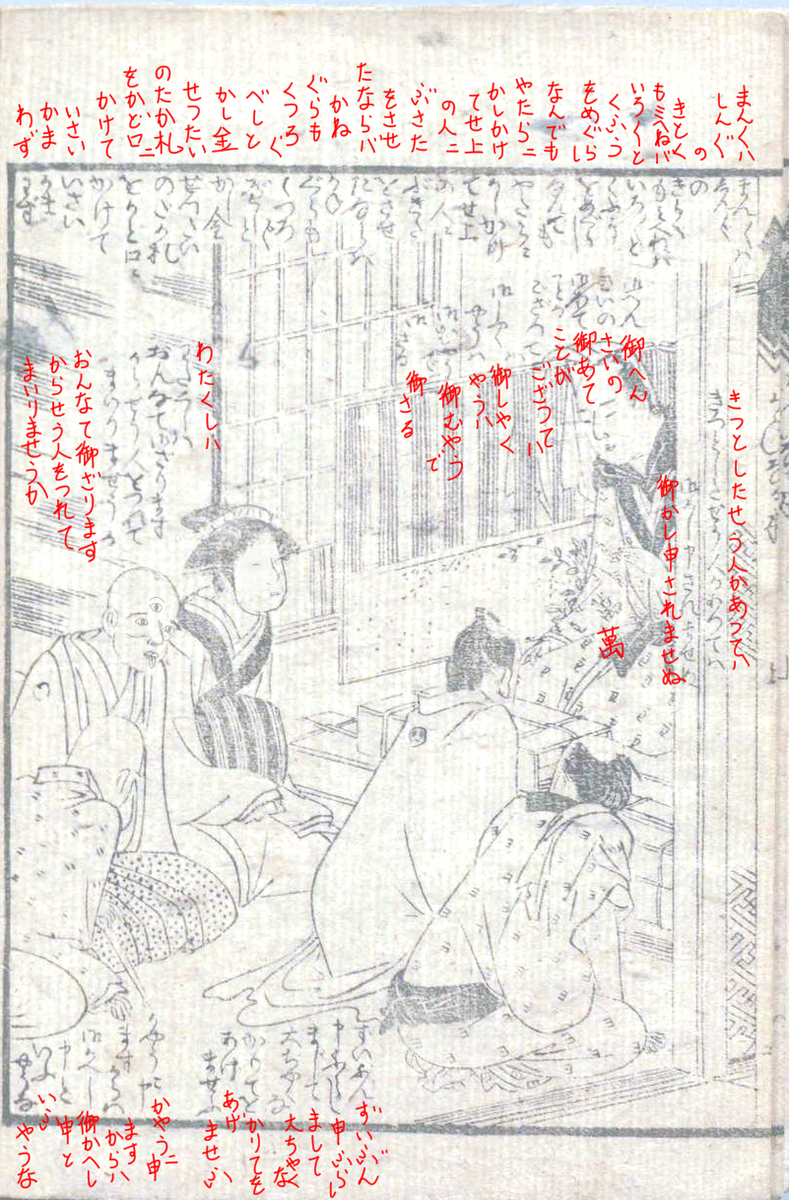 まんくハ
しんぐ
の
きとく
もミへねバ
いろ〱と
くふう
をめぐらし
なんでも
やたらニ
かしかけ
てせ上
の人ニ
ぶさた
をさせ
たならバ
かね
ぐらも
くつろぐ
べしと
かし金
せつたい
のたか札
をかど口ニ
かけて
いさい
かま
わず
きつとしたせう人かあつてハ
御かし申されませぬ
御へん
さいの
御あて
ことが
ござつてハ
御しやく
やうハ
御むやうで
御さる
萬
わたくしハ
おんなて御ざります
からせう人をつれて
まいりませうか
ずいぶん
申ぶらし
まして
大ちやくな
かりてを
あげ
ませふ
かやうニ申
ます
からハ
御かへし
申と
いふ
やうな